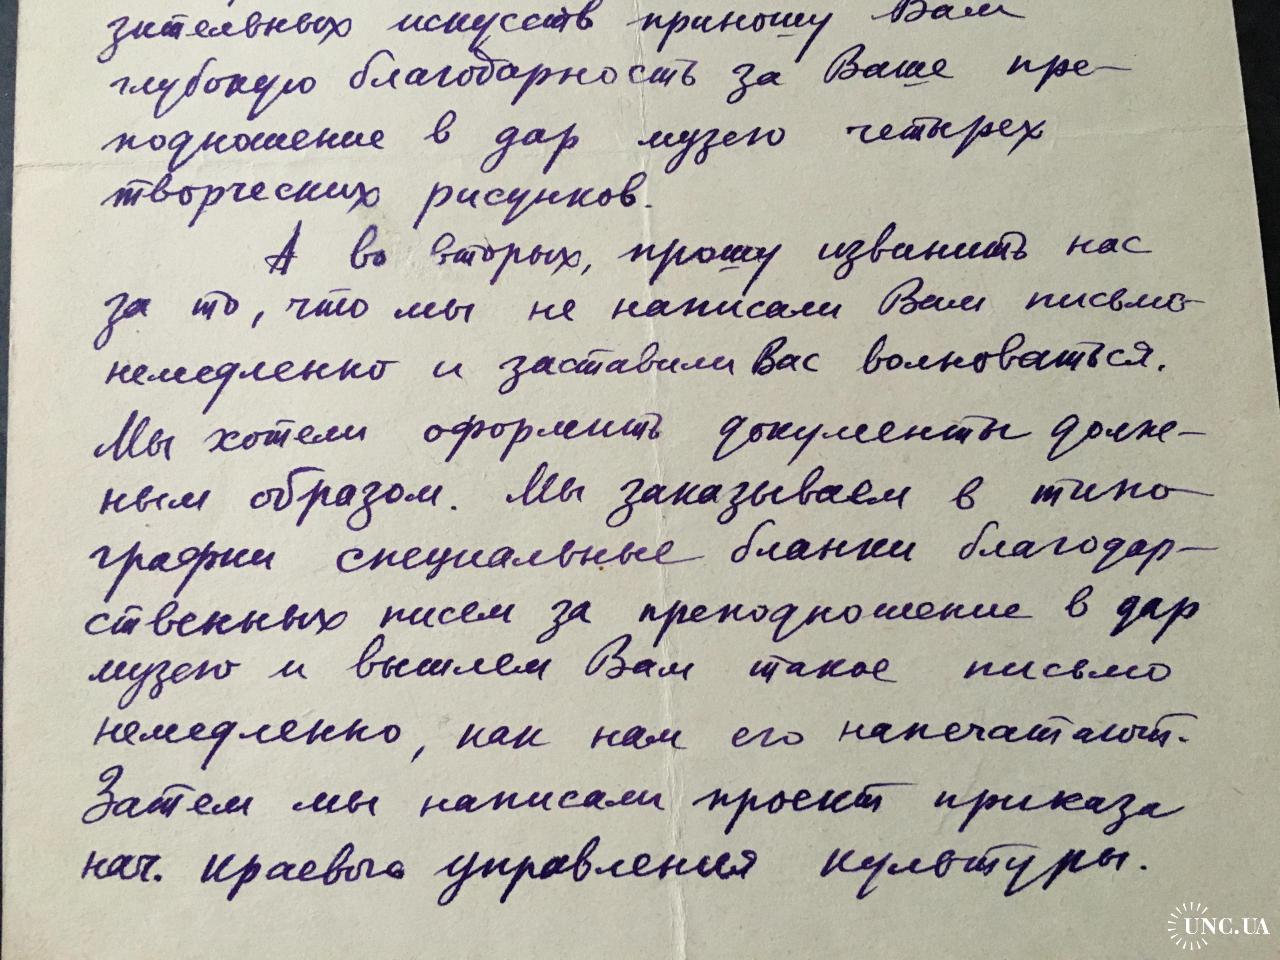 зительных искусств приношу Вам
глубокую благодарность за Ваше пре-
подношение в дар музею четырех
творческих рисунков.
А во вторых, прошу извинить нас
за то, что мы не написали Вам письмо
немедленно и заставили Вас волноваться.
Мы хотели оформить документы долж-
ным образом. Мы заказываем в типо-
графии специальные бланки благодар-
ственных писем за преподношение в дар
музею и вышлем Вам такое письмо
немедленно, как нам его напечатают.
Затем мы написали проект приказа
нач. краевого управления культуры.
UNC.UA